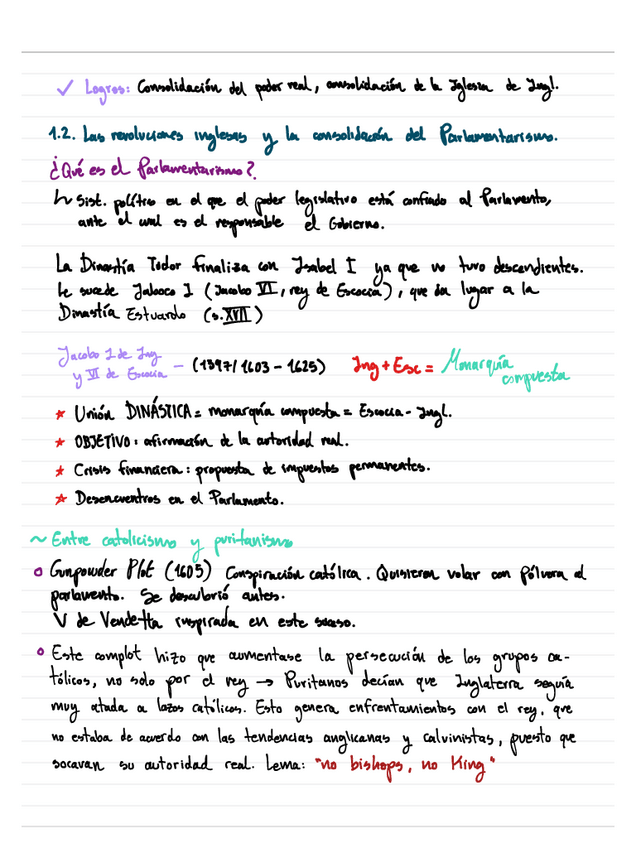 ✓ Logros: Consolidación del poder real, consolidación de la Iglesia de Ingl.
1.2. Las revoluciones inglesas y la consolidación del Parlamentarismo.
¿Qué es el Parlamentarismo?
↳ Sist. político en el que el poder legislativo está confiado al Parlamento,
ante el cual es el responsable el Gobierno.
La Dinastía Tudor finaliza con Isabel I ya que no tuvo descendientes.
Le sucede Jaboco I (Jacobo VI, rey de Escocia), que da lugar a la
Dinastía Estuardo (s.XVII)
Jacobo I de Ing
y VI de Escocia – (1397/1603 – 1625) Ing + Esc = Monarquía
compuesta
* Unión DINÁSTICA = monarquía compuesta = Escocia - Ingl.
* OBJETIVO: afirmación de la autoridad real.
* Crisis financiera: propuesta de impuestos permanentes.
* Desencuentros en el Parlamento.
~ Entre catolicismo y puritanismo
o Gunpowder Plot (1605) Conspiración católica. Quisieron volar con pólvora el
parlamento. Se descubrió antes.
V de Vendetta inspirada en este suceso.
o Este complot hizo que aumentase la persecución de los grupos ca-
tólicos, no solo por el rey → Puritanos decían que Inglaterra seguía
muy atada a lazos católicos. Esto genera enfrentamientos con el rey, que
no estaba de acuerdo con las tendencias anglicanas y calvinistas, puesto que
socavan su autoridad real. Lema: "no bishops, no King"